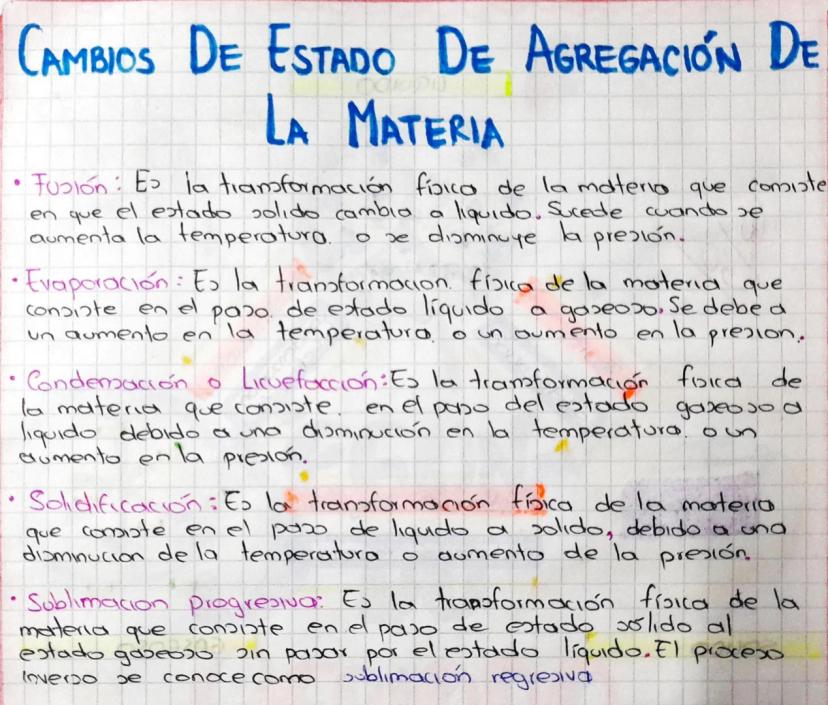 CAMBIOS DE ESTADO DE AGREGACIÓN DE
LA MATERIA
• Fusión: Es la transformación física de la materia que consiste
en que el estado solido cambia a liquido. Sucede cuando se
aumenta la temperatura o se disminuye la presión.
• Evaporación: Es la transformacion física de la materia que
consiste en el paso de estado líquido a gaseoso. Se debe a
un aumento en la temperatura o un aumento en la presion.
• Condensación o Licuefacción: Es la transformación física de
la materia que consiste en el paso del estado gaseoso a
liquido debido a una disminución en la temperatura o un
aumento en la presión.
• Solidificación: Es la transformación física de la materia
que consiste en el paso de liquido a solido, debido a una
disminucion de la temperatura o aumento de la presión.
• Sublimacion progresiva: Es la transformación física de la
materia que consiste en el paso de estado sólido al
estado gaseoso sin pasar por el estado líquido. El proceso
inverso se conoce como sublimación regresiva